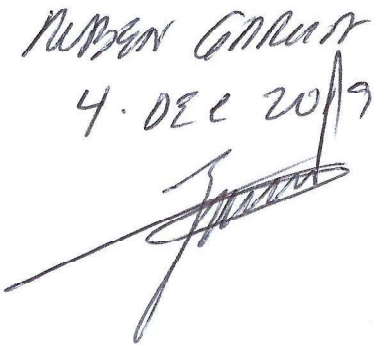 RUBEN GARCIA
4. DEC 2019